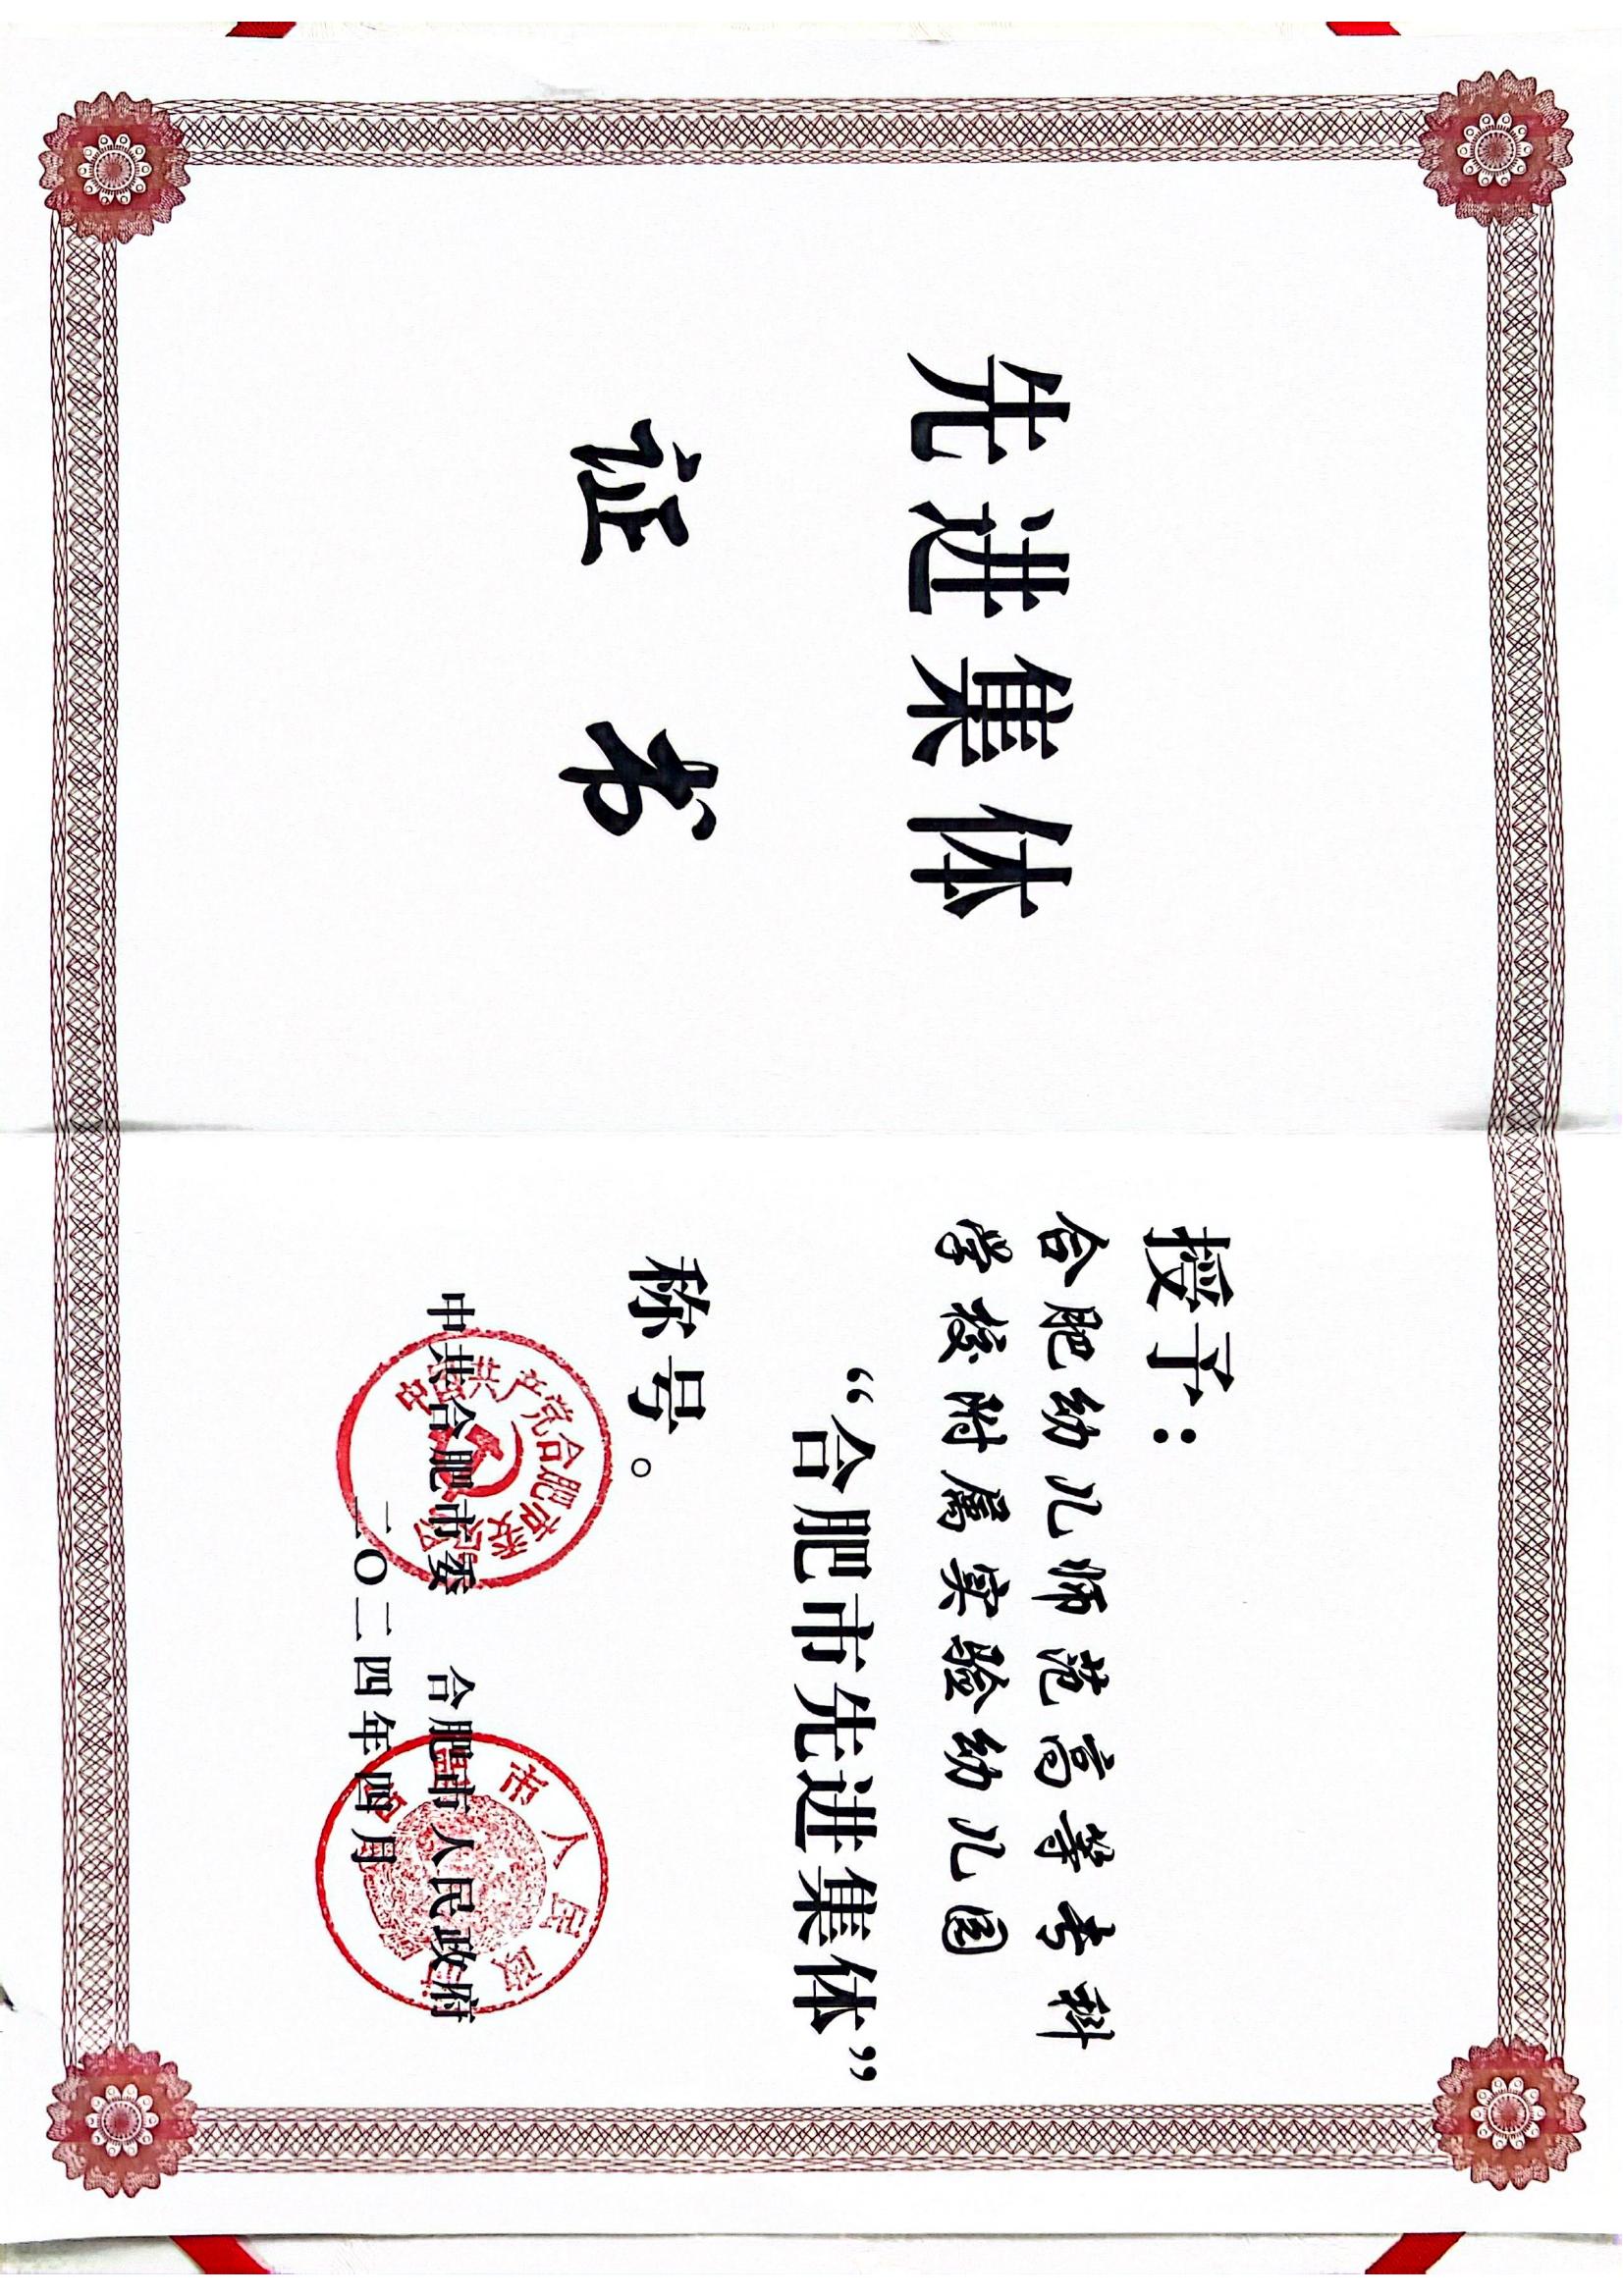 先进集体
证书
授予：
合肥幼儿师范高等专科
学校附属实验幼儿园
“合肥市先进集体”
称号。
中共合肥市委 合肥市人民政府
二〇二四年四月
中国共产党合肥市委员会
合肥市人民政府